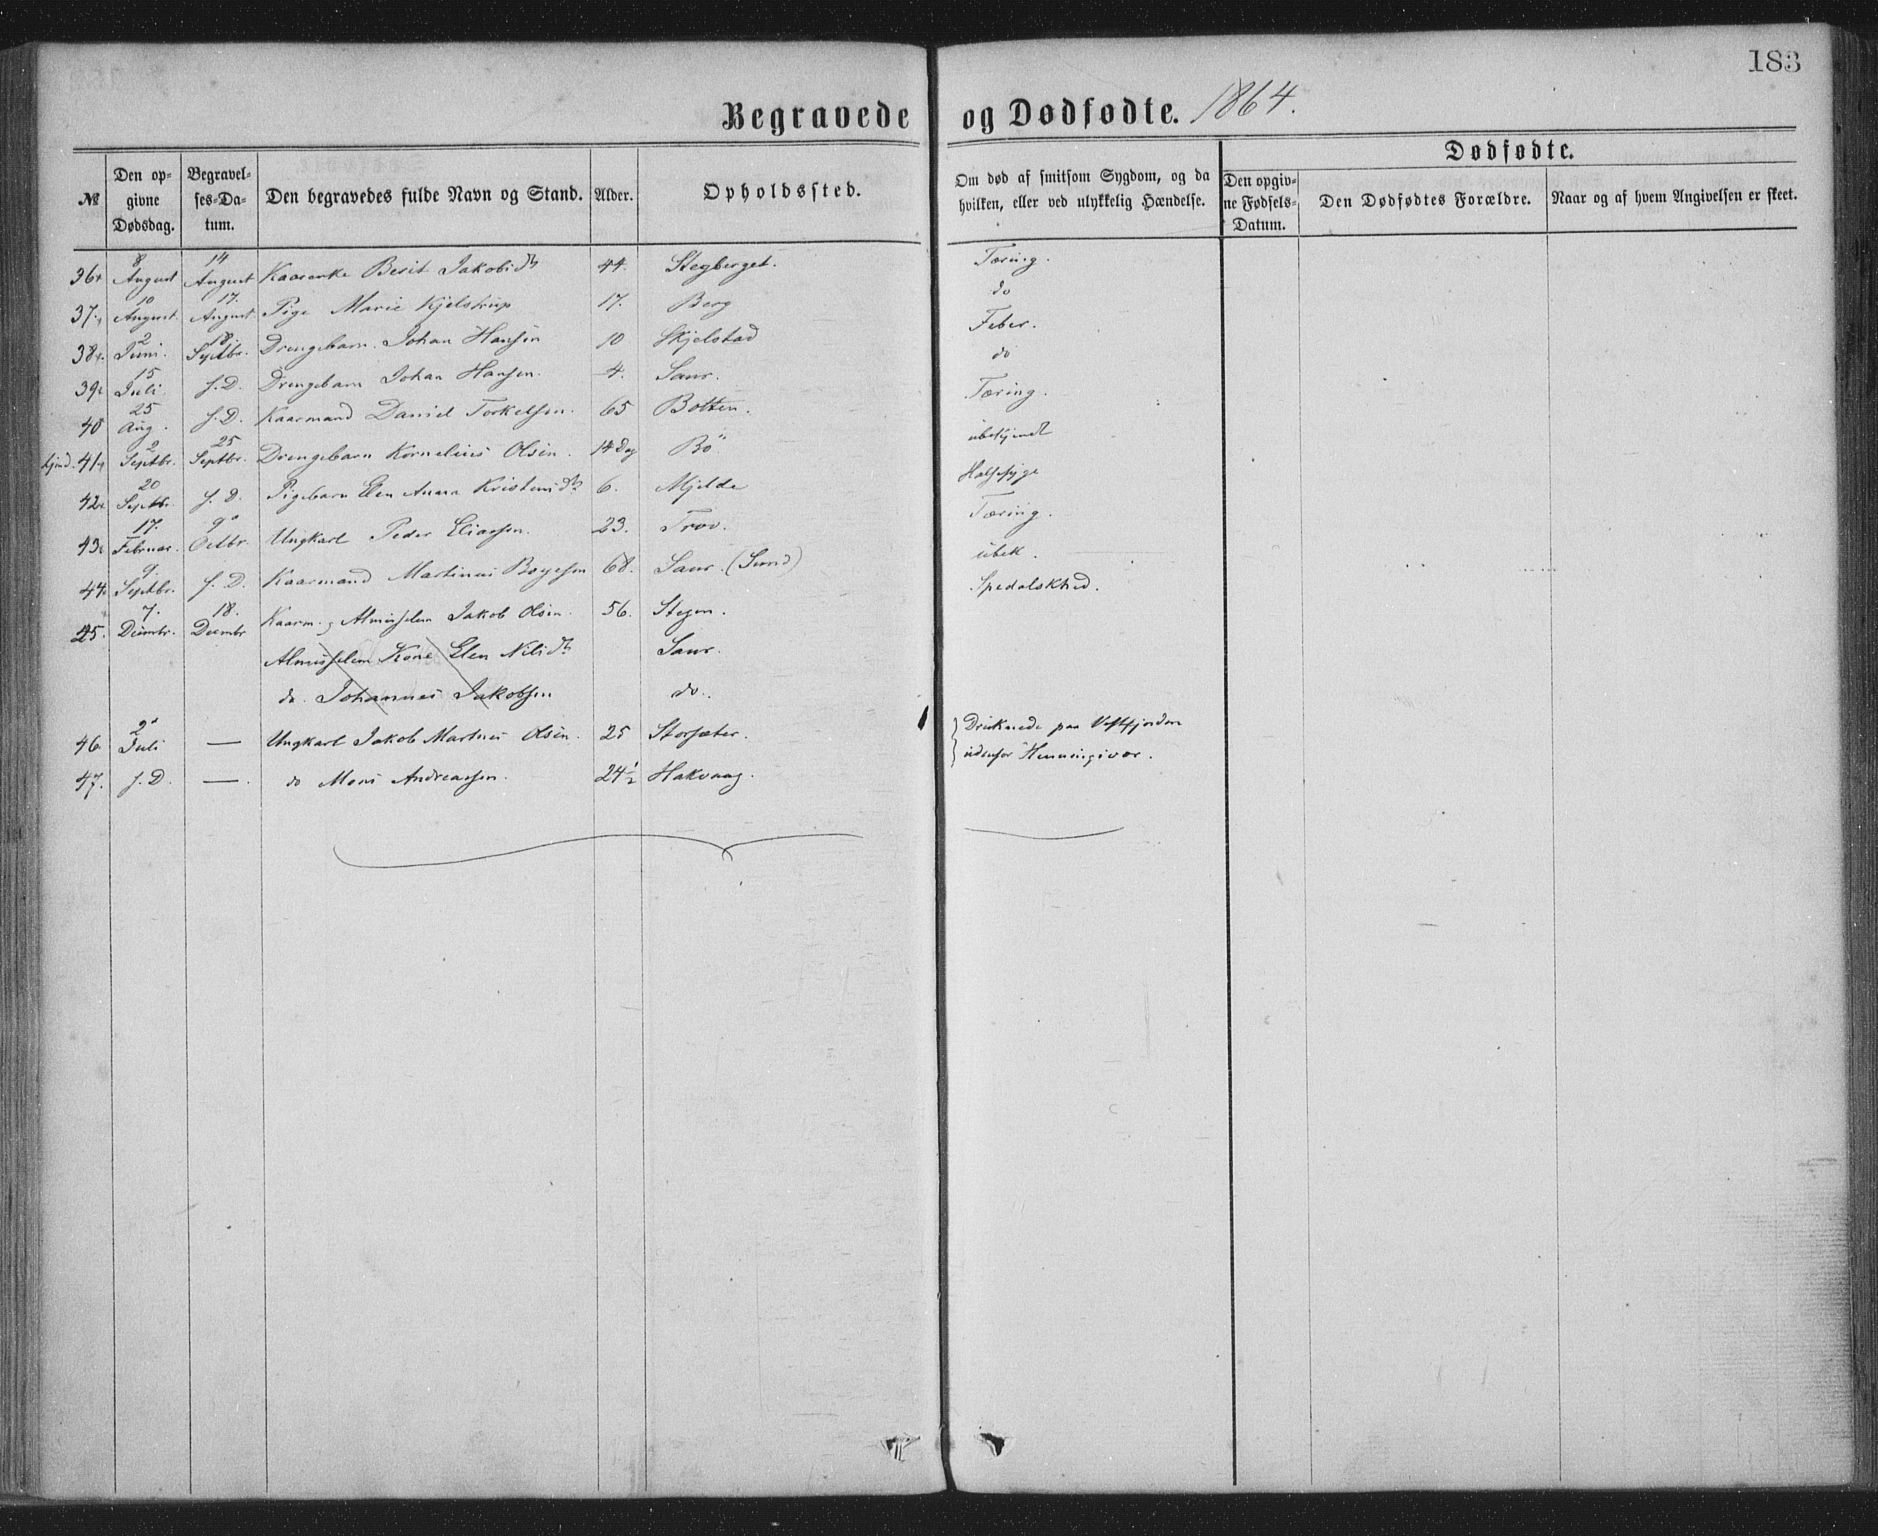 183
Begravede og Dødfødte. 1864.
№ Den opgivne Dødsdag. Begravelses-Datum. Den begravedes fulde Navn og Stand. Alder. Opholdssted. Om død af smitsom Sygdom, og da hvilken, eller ved ulykkelig Hændelse. Dødfødte. Den opgivne Fødsels-Datum. Den Dødfødtes Forældre. Naar og af hvem Angivelsen er skeet.
36 8 August 14 August Kaarenke Berit Jakobsdtr 44. Stegberget. Tæring.
37. 10 August 17. August Pige Marie Kjelstrup 17. Berg do
38. 2 Juni. 18. Septbr. Drengebarn Johan Hansen 10 Skjelstad Feber.
39. 15 Juli f. D. Drengebarn Johan Hansen. 4. Saur. do
40 25 Aug. f. D. Kaarmand Daniel Torkelsen. 65 Botten. Tæring.
41. 2 Septbr. 25 Septbr. Drengebarn Kornelius Olsen. 14 Dag Bö ubekjendt
42. 20 Septbr. f. D. Pigebarn Elen Anna Kristensdtr 6. Mjelde Halssyge
43. 17. Februar. 9 Octbr. Ungkarl Peder Eliassen. 23. Trov. Tæring.
44. 9. Septbr. f. D. Kaarmand Martinus Bogesen 68. Saur. (Sund) ubek.
45. 7. Decmbr. 18. Decmbr Kaarm. og Almisselem Jakob Olsen. 56. Stegen. Spedalskhed.
Almisselem Kone Elen Nilsdtr Saur.
do. Johannes Jakobsen do.
46. 2 Juli — Ungkarl Jakob Martinus Olsen. 25 Storsæter. Druknede paa Vestfjorden
47. f. D. — do Mons Andreassen. 24½ Hakvaag. udenfor Henningsvær.